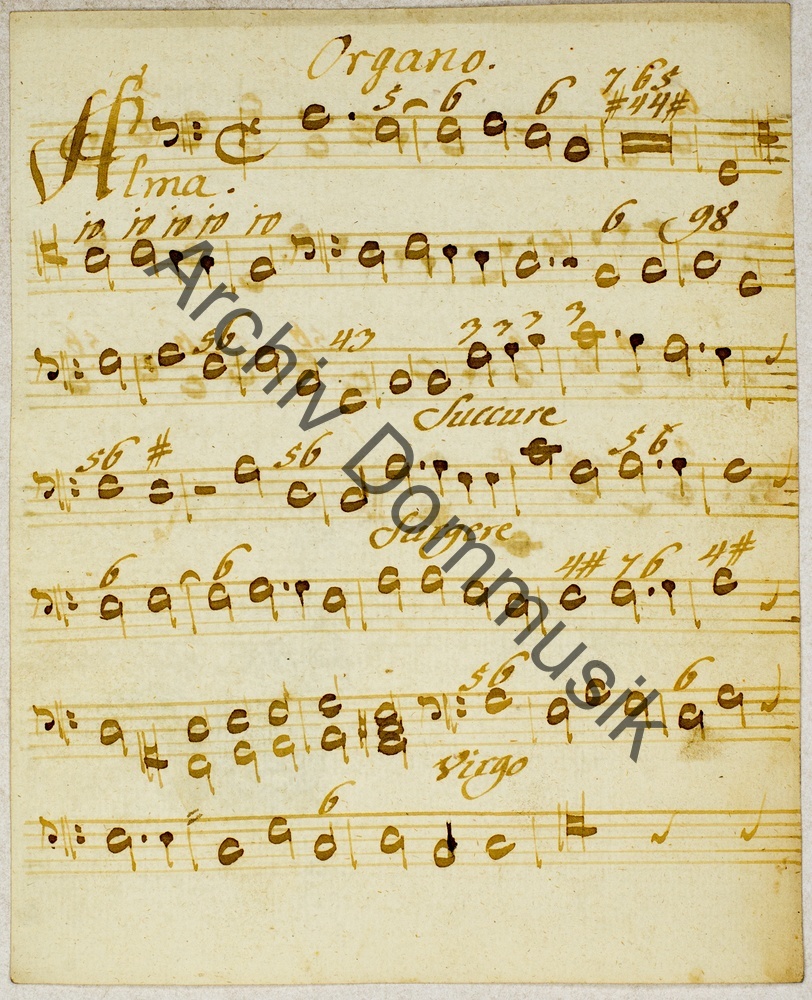 Organo.
5 6 6 7 6 5
#44#
Alma.
10 10 10 10 10 6 98
56 43 3 3 3 3
Succure
56 # 56 5 6
Surgere
6 6 4# 76 4#
56 6
Virgo
6
Archiv Dommusik